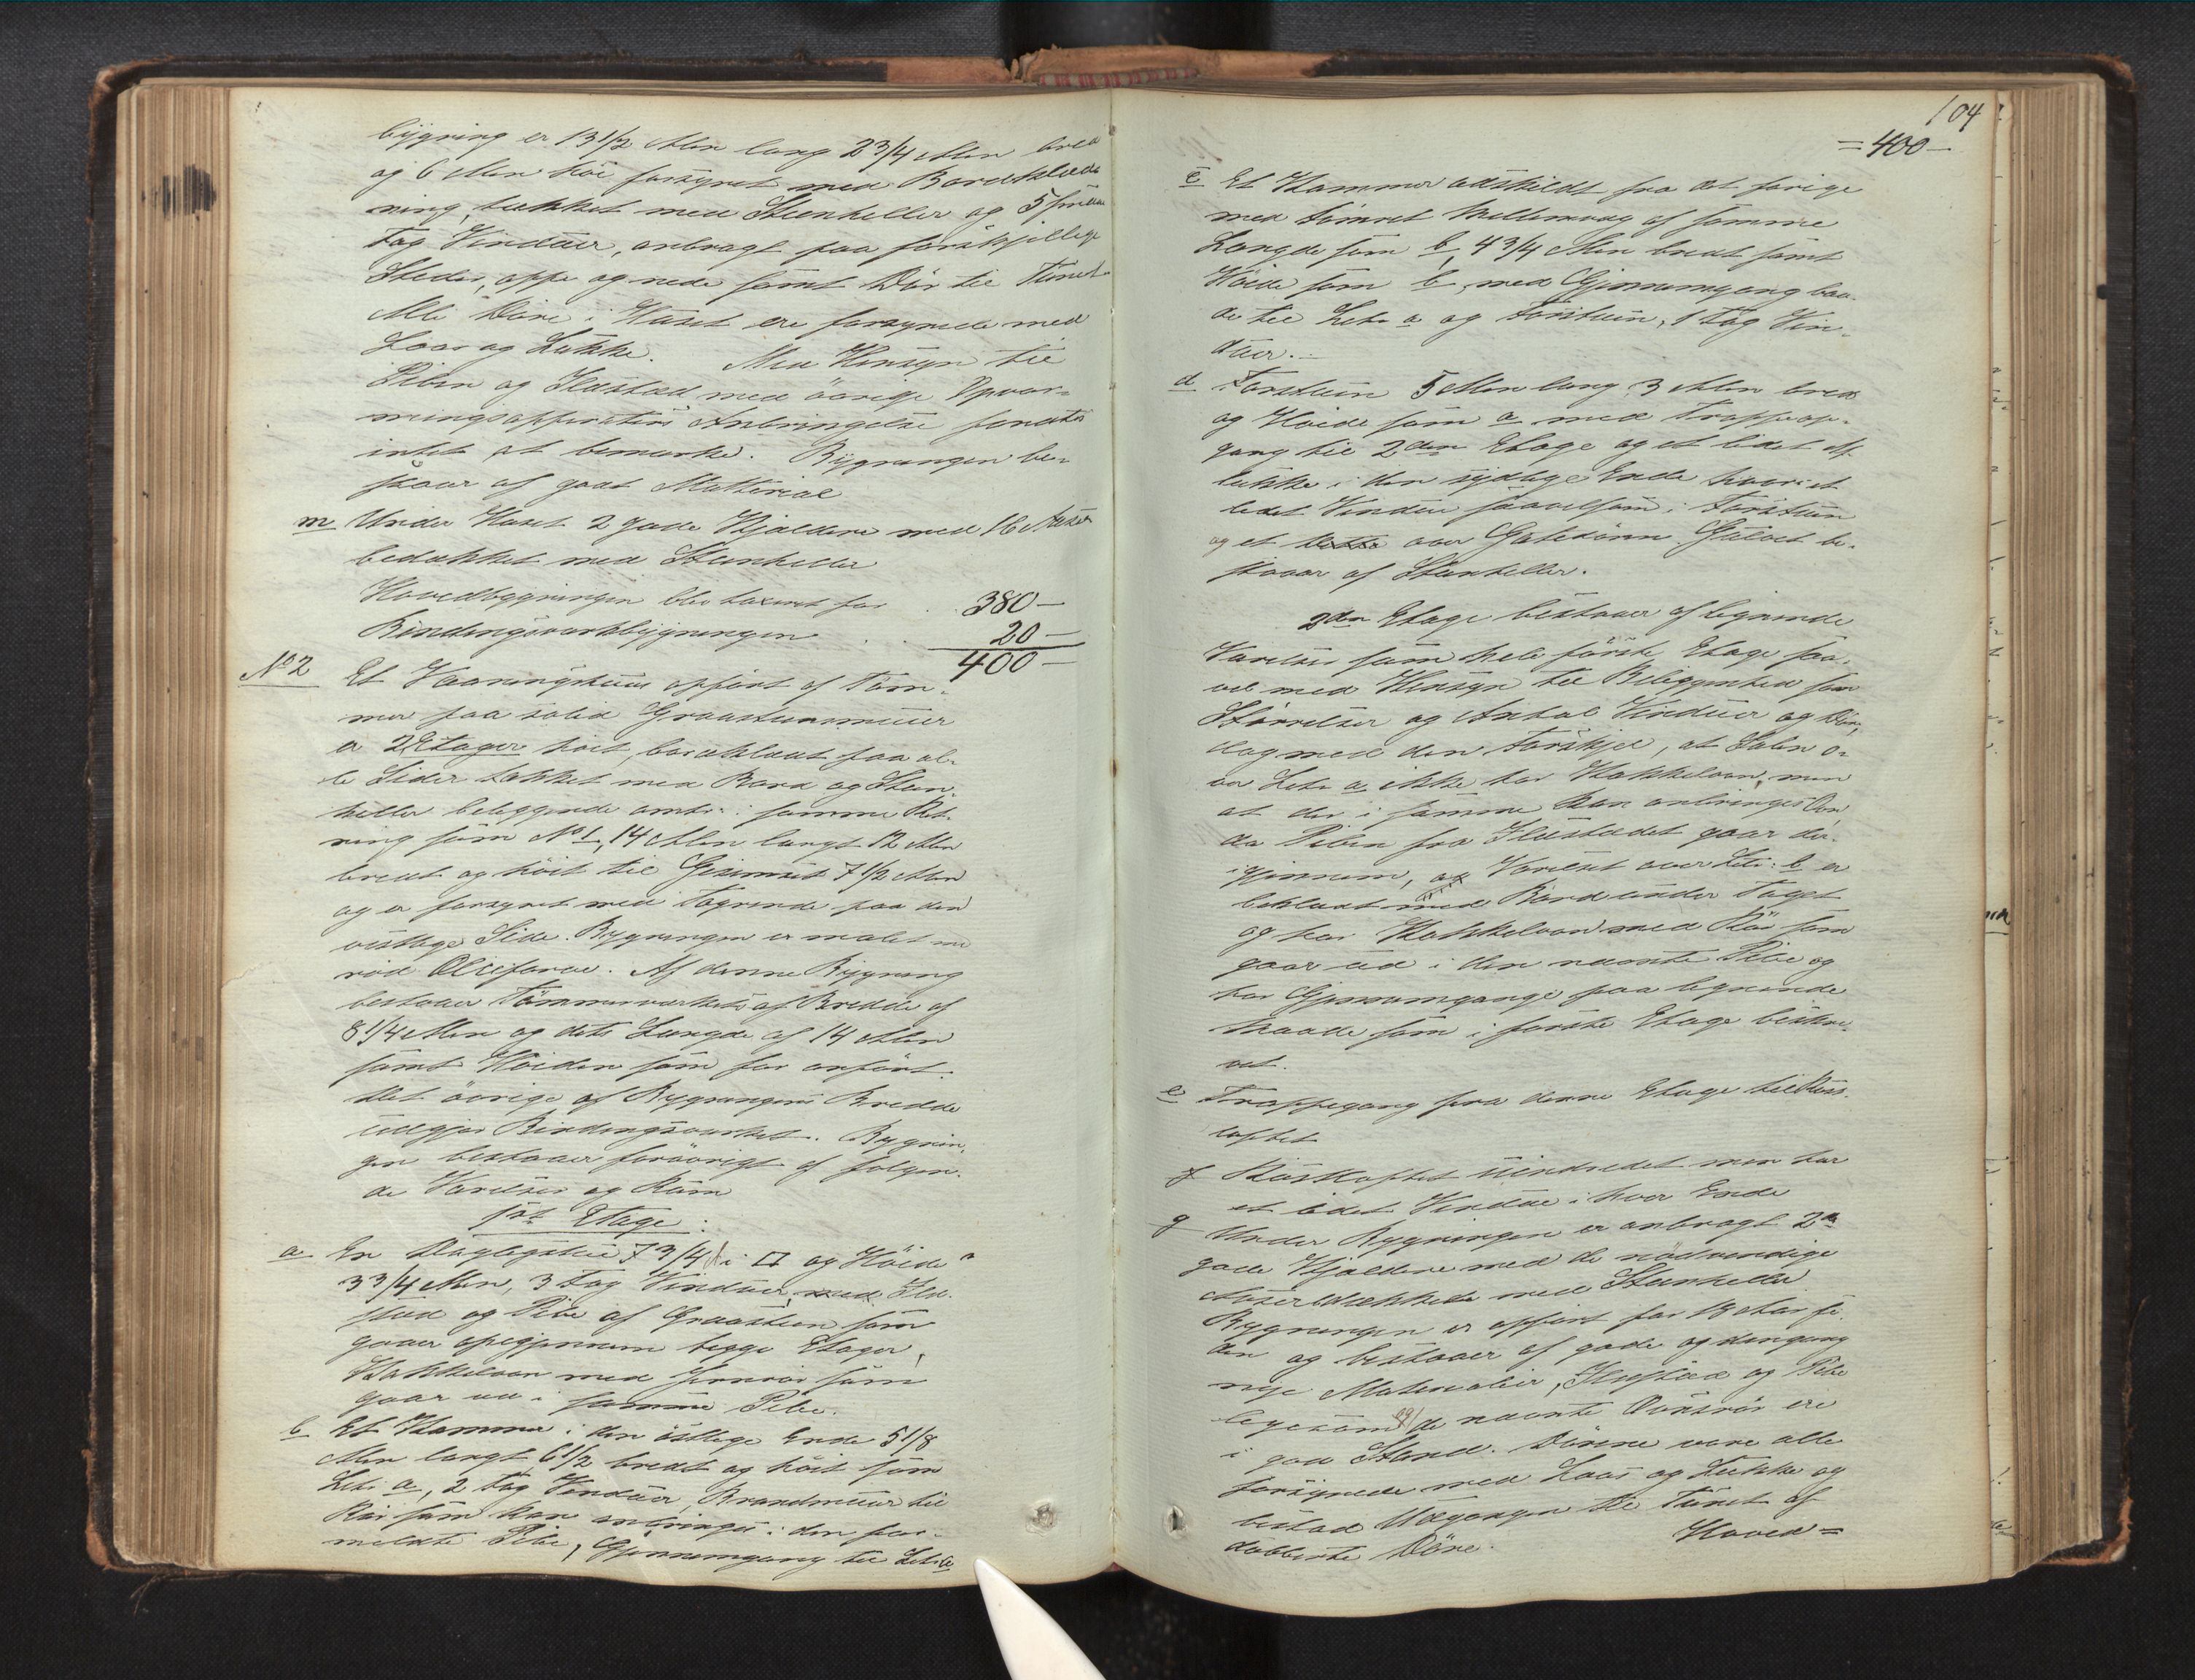 bygning er 13 1/2 Alen lang 2 3/4 Alen bred
og 6 Alen høi forsynet med Bordklæd-
ning, tækket med Steenheller og 5 smaa
Fag Vinduer, anbragt paa forskjellige
Steder, oppe og nede samt Dør til Tunet.
Alle Døre i Huset ere forsynede med
Laas og Lukke. Med Hensyn til
Piben og Ildsted med øvrige Opvar-
mningsapparaters Anbringelse fandtes
intet at bemærke. Bygningen be-
staar af godt Matterial
m Under Huset 2 gode Kjældere med 16 Aaser
bedækket med Steenheller
Hovedbygningen blev taxeret for . 380 –
Bindingsværksbygningen . . 20 –
400 –
No 2 Et Vaaningshuus opført af Tøm-
mer paa solid Graasteensmuur
er 2 Etager høit, bordklædt paa al-
le Sider tækket med Bord og Steen-
heller beliggende omtr: i samme Ret-
ning som No 1, 14 Alen langt 12 Alen
bredt og høit til Gesimset 7 1/2 Alen
og er forsynet med Tagrende paa den
vestlige Side. Bygningen er malet med
rød Oliefarve. Af denne Bygning
bestaaer Tømmerværkets af Bredde af
8 1/4 Alen og dets Længde af 14 Alen
samt Høiden som før anført.
Det øvrige af Bygningens Bredde
udgjør Bindingsværket. Bygnin-
gen bestaaer forøvrigt af følgen-
de Værelser og Rum
1ste Etage:
a En Dagligstue 7 3/4 A i □ og Høide
3 3/4 Alen, 3 Fag Vinduer, med Ild-
sted og Pibe af Graasteen som
gaaer opigjennem begge Etager,
Kakkelovn med Jernrør som
gaar ud i samme Pibe.
b Et Kammer i den østlige Ende 5 1/8
Alen langt, 6 1/2 bredt og høit som
Litr a, 2 Fag Vinduer, Brandmuur til
Rør som kan anbringes i den for-
meldte Pibe, Gjennemgang til Litr a
104
= 400 –
c Et Kammer adskildt fra det forige
med tømret Mellemvæg af samme
Længde som b, 4 3/4 Alen bredt samt
Høide som b, med Gjennemgang baa-
de til Litr a og Forstuen, 1 Fag Vin-
duer.
d Forstuen 5 Alen lang, 3 Alen bred
og Høide som a med Trappeop-
gang til 2den Etage og et lidet Af-
lukke i den sydlige Ende hvori et
lidet Vindue saavelsom i Forstuen
og et dette over Gadedøren. Gulvet be-
staaer af Steenheller.
2den Etage bestaaer af lignende
Værelser som hele første Etage saa-
vel med Hensyn til Beliggenhed som
Størrelser og Antal Vinduer og Døre,
dog med den Forskjel, at Salen o-
ver Litr a ikke har Kakkelovn, men
at der i samme kan anbringes Ovn
da Piben fra Ildstedet gaar der-
igjennem, og Værelset over Litr: b er
beklædt med Bord under Taget
og har Kakkelovn med Rør som
gaar ud i den nævnte Pibe og
har Gjennemgange paa lignende
Maade som i første Etage beskre-
vet.
e Trappegang fra denne Etage til Røst-
loftet
f Røstloftet uindredet men har
et lidet Vindue i hver Ende
g Under Bygningen er anbragt 2de
gode Kjældere med de nødvendige
Aaser bedækkede med Steenheller
Bygningen er opført for 18 Aar si-
den og bestaaer af gode og dengang
nye Materialier, Ildsted og Pibe
ligesom og de nævnte Ovnsrør ere
i god Stand. Dørene vare alle
forsynede med Laas og Lukke og
bestod Udgangen til Tunet af
dobbelte Døre. Hoved=